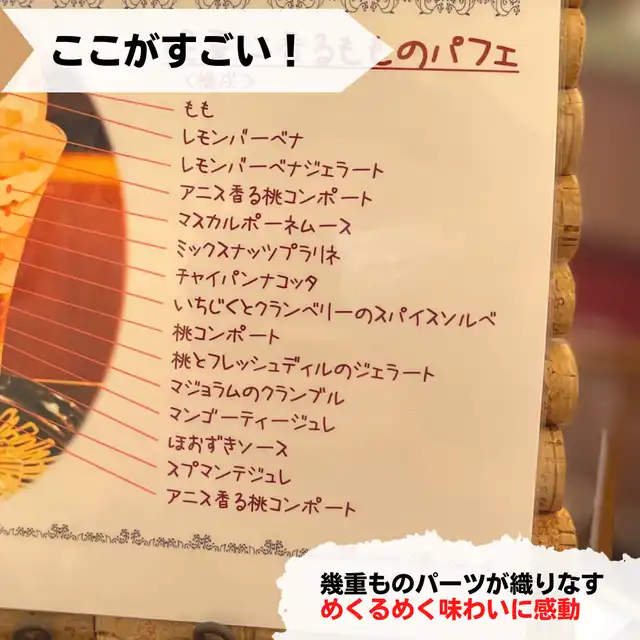 ここがすごい！
香るもものパフェ
もも
レモンバーベナ
レモンバーベナジェラート
アニス香る桃コンポート
マスカルポーネムース
ミックスナッツプラリネ
チャイパンナコッタ
いちじくとクランベリーのスパイスソルベ
桃コンポート
桃とフレッシュディルのジェラート
マジョラムのクランブル
マンゴーティージュレ
ほおずきソース
スプマンテジュレ
アニス香る桃コンポート
幾重ものパーツが織りなす
めくるめく味わいに感動